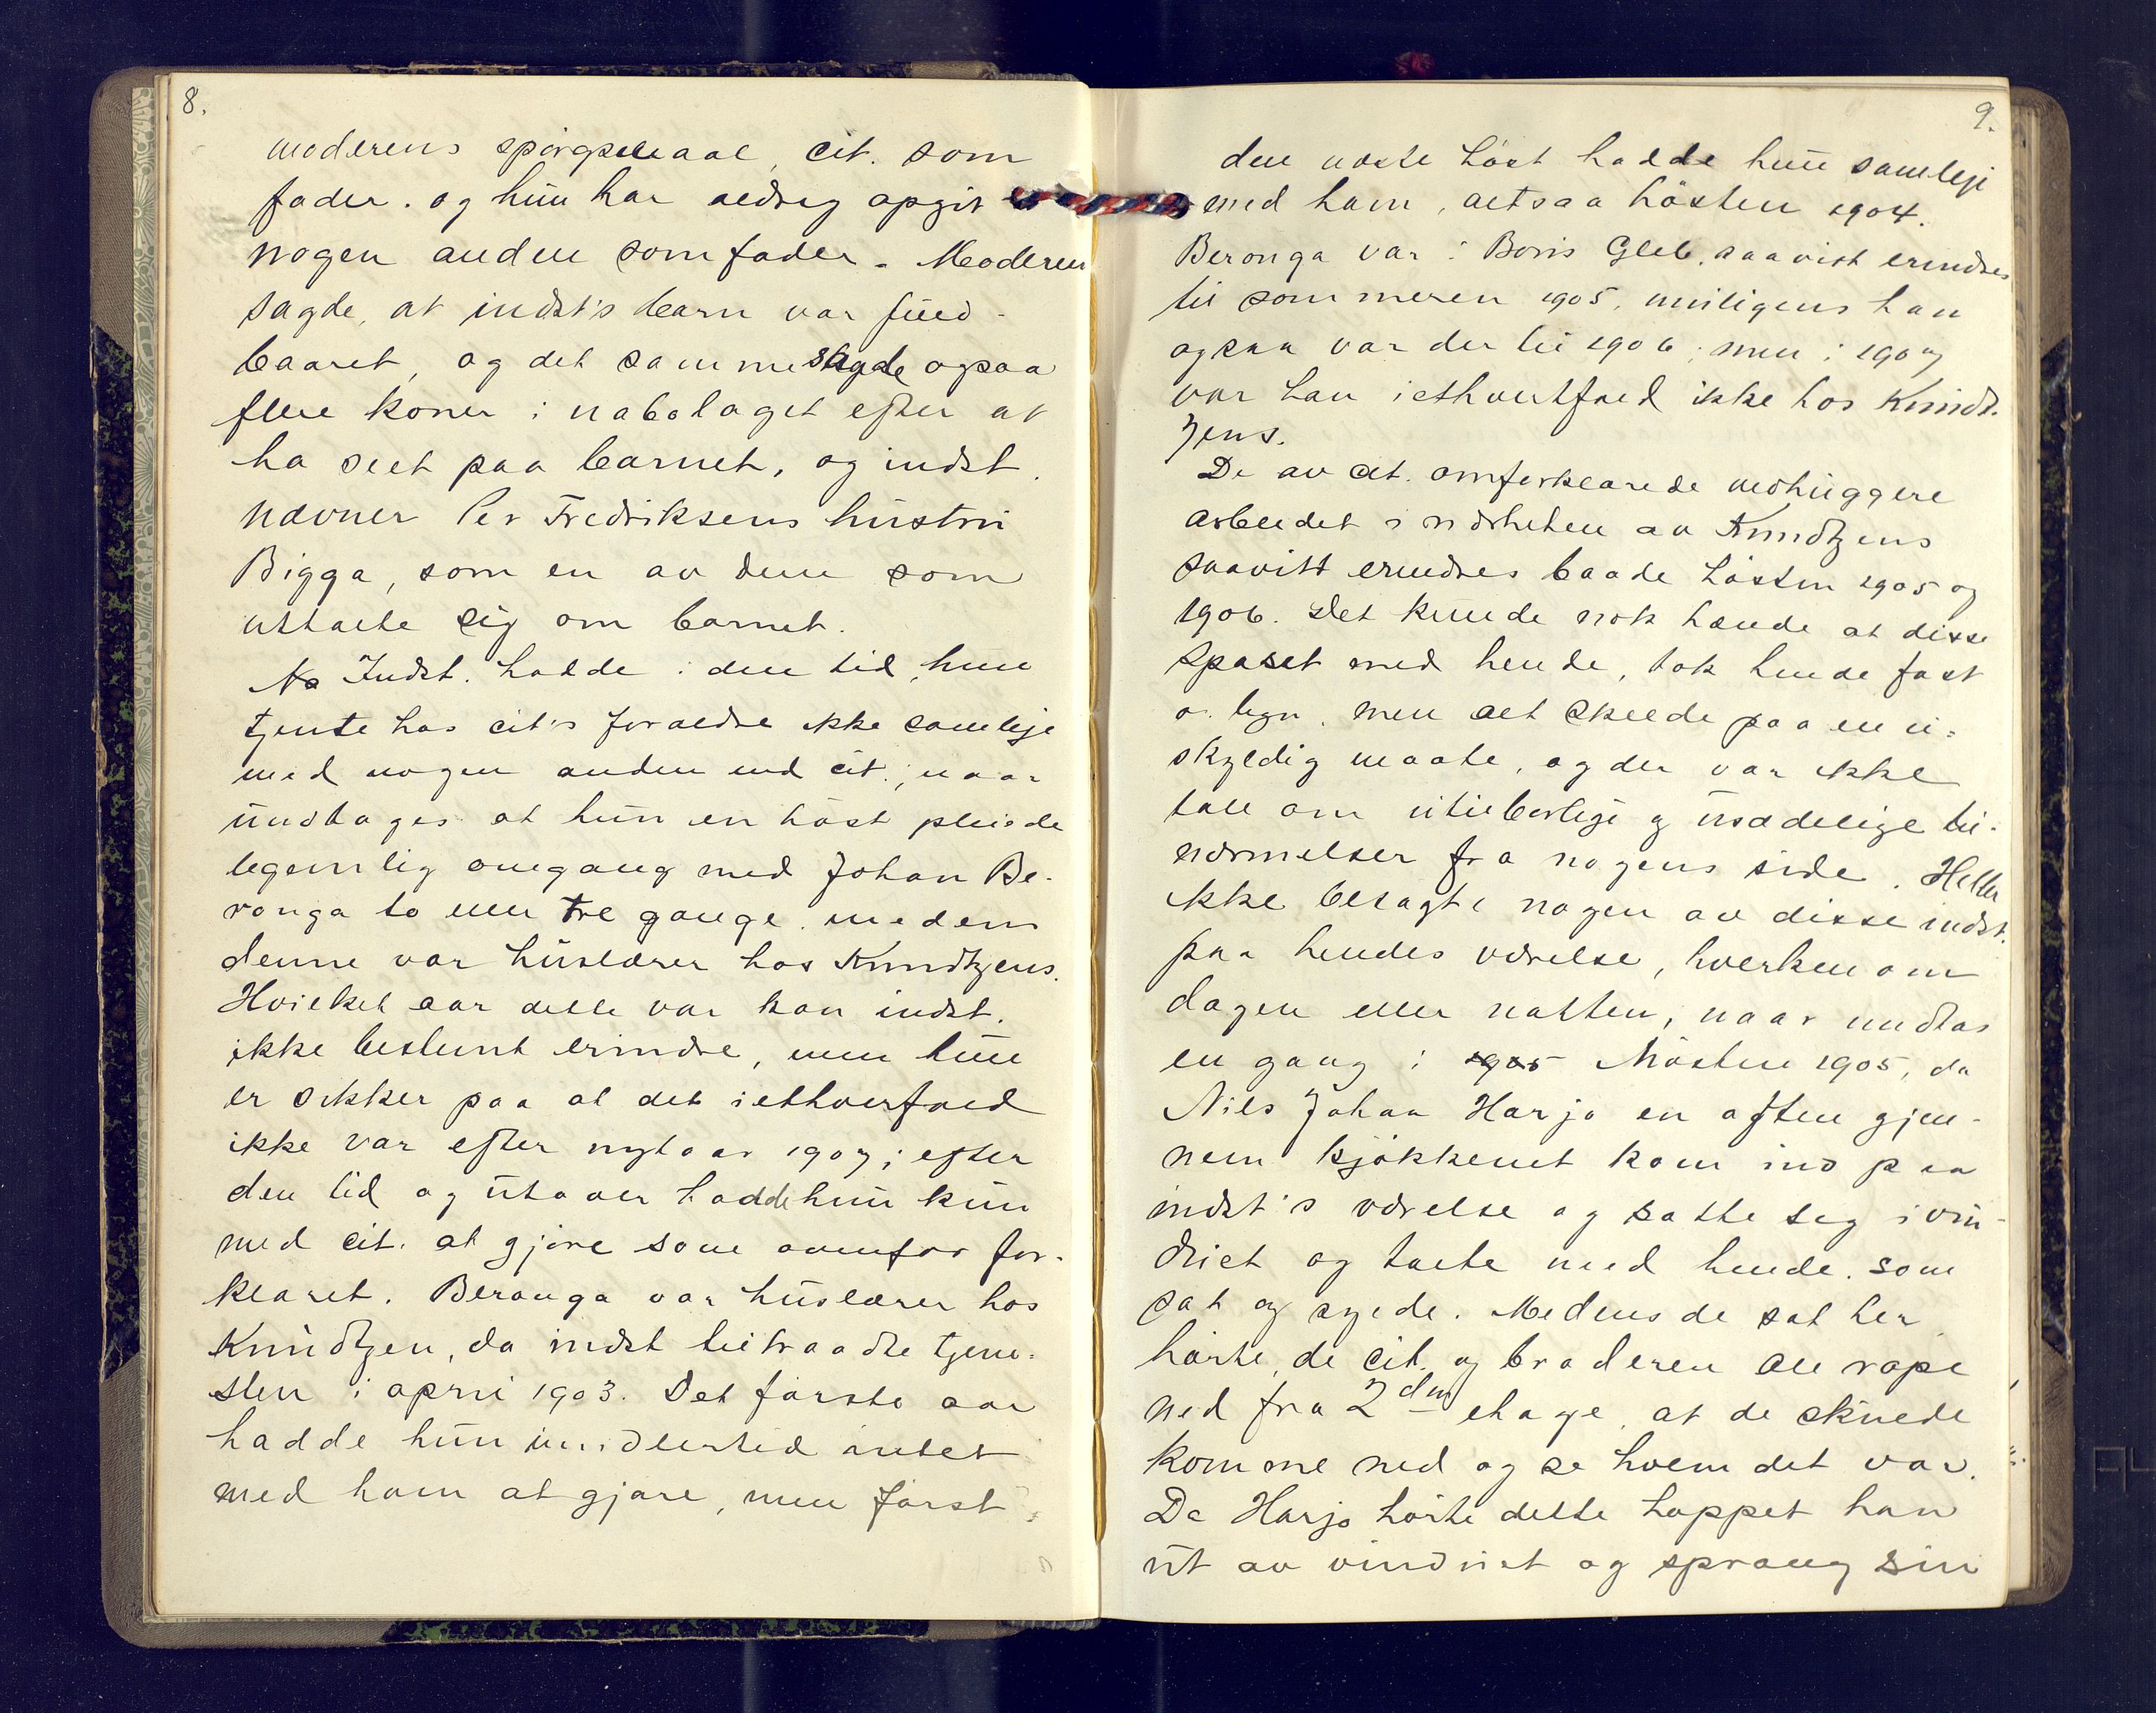 8.
moderens spörgsmaal, cit. som
fader. og hun har aldrig opgit
nogen anden som fader. Moderen
sagde, at indst's barn var fuld-
baaret, og det samme sagde ogsaa
flere koner i nabolaget efter at
ha seet paa barnet, og indst.
nævner Per Fredriksens hustru
Bigga, som en av dem som
uttalte sig om barnet.
Indst. hadde i den tid, hun
tjente hos cit's forældre ikke samleje
med nogen anden end cit.; naar
undtages at hun en höst pleiede
legemlig omgang med Johan Be-
ronga to eller tre gange. medens
denne var huslærer hos Knudtzens.
Hvilket aar dette var kan indst.
ikke bestemt erindre, men hun
er sikker paa at det iethverfald
ikke var efter nytaar 1907; efter
den tid og utover hadde hun kun
med cit. at gjöre som ovenfor for-
klaret. Beronga var huslærer hos
Knudtzen, da indst tiltraadte tjene-
sten i april 1903. Det förste aar
hadde hun imidlertid intet
med ham at gjöre, men först
9.
den næste höst hadde hun samleje
med ham, altsaa hösten 1904.
Beronga var i Boris Gleb, saavidt erindres
til sommeren 1905, muligens han
ogsaa var der til 1906; men i 1907
var han iethvertfald ikke hos Knudt-
zens.
De av cit. omforklarede vedhuggere
arbeidet i nærheten av Knudtzens
saavitt erindres baade hösten 1905 og
1906. Det kunde nok hænde at disse
spaset med hende, tok hende fast
o. lign. men alt skeede paa en u-
skyldig maate, og der var ikke
tale om utilbørlige og usædelige til-
nærmelser fra nogens side. Heller
ikke besøgte nogen av disse indst.
paa hendes værelse, hverken om
dagen eller natten, naar undtas
en gang i 1905 hösten 1905, da
Nils Johan Harjo en aften gjen-
nem kjökkenet kom ind paa
indst's værelse og satte seg i vin-
duet og talte med hende. som
sat og syede. Medens de sat her
hörte de cit. og broderen Ole rope
ned fra 2den etage, at de skulde
komme ned og se hvem det var.
Da Harjo hörte dette hoppet han
ut av vinduet og sprang sin